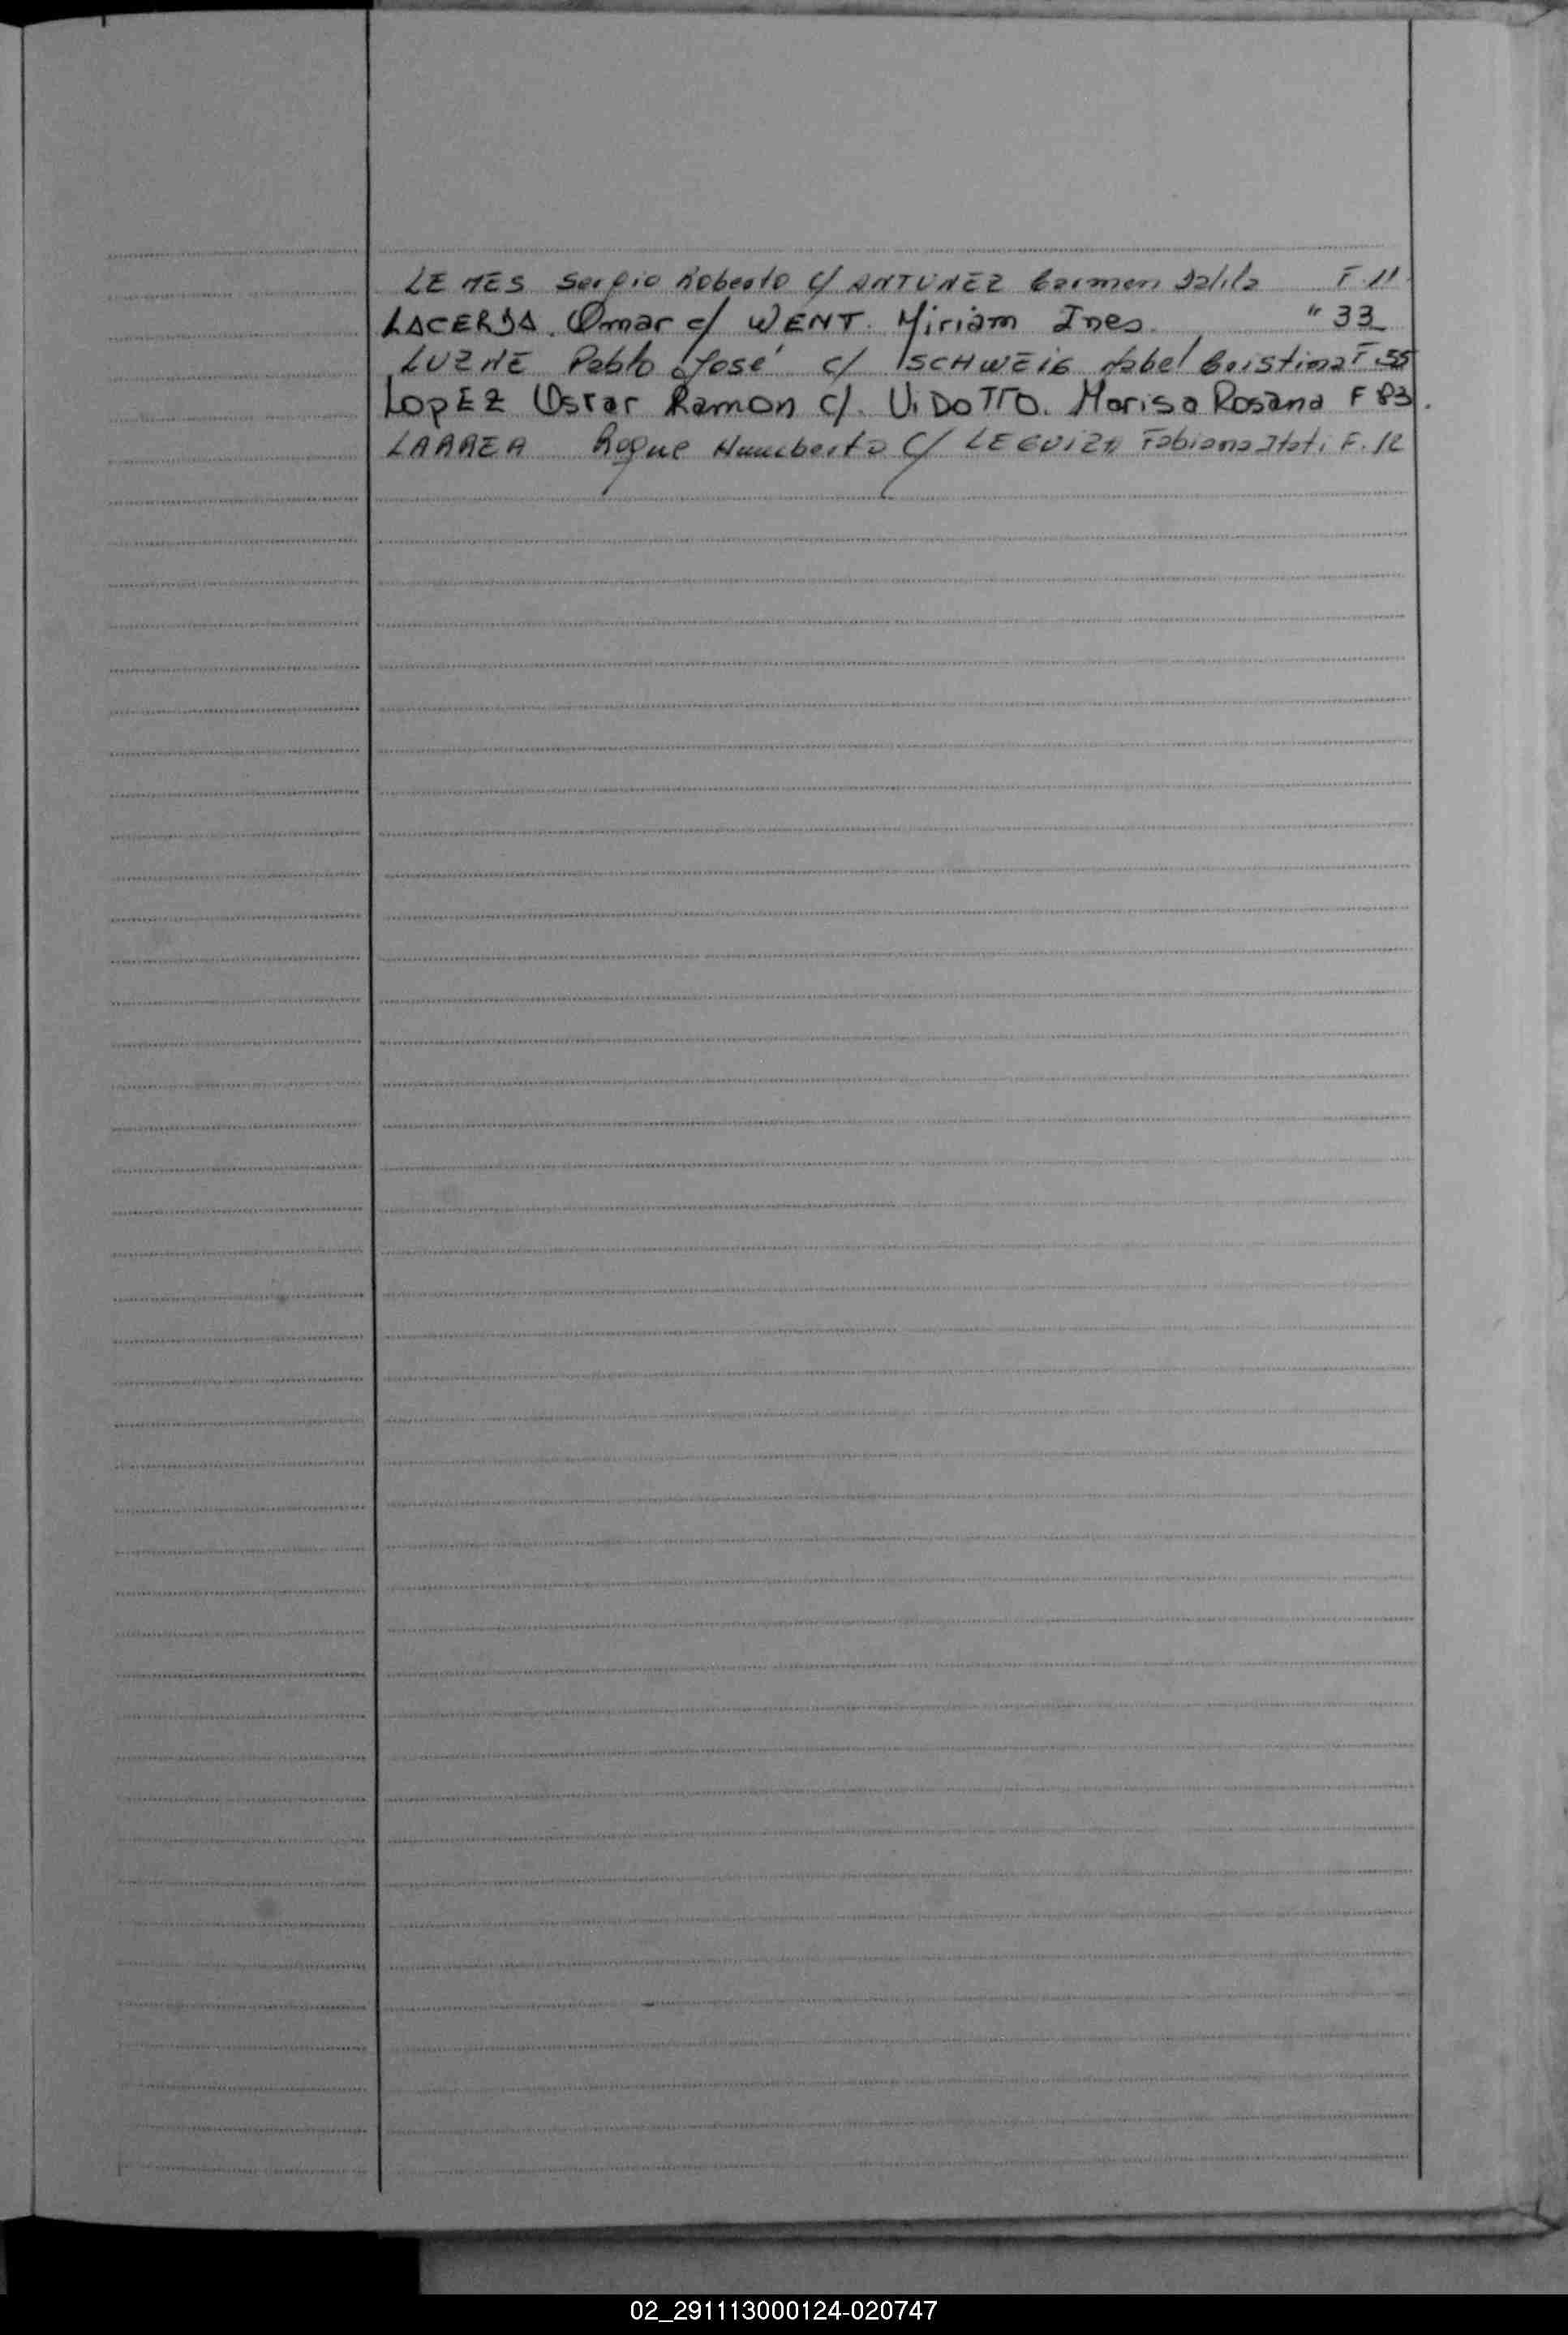 LEMES Sergio Roberto c/ ANTUNEZ Carmen Dalila F. 11
LACERDA. Omar c/ WENT. Miriam Ines. " 33
LUZNE Pablo José c/ SCHWEIG Mabel Cristina F 55
LopEZ Oscar Ramon c/. ViDOTTO. Marisa Rosana F 83.
LARREA Roque Humberto c/ LEGUIZA Fabiana Itati F. 12
02_291113000124-020747